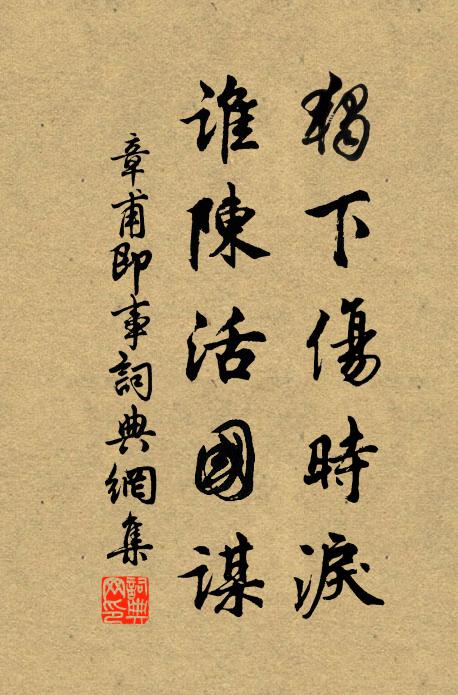 獨下傷時淚
誰陳活國謀
章甫即事詞典網集
詞典网印